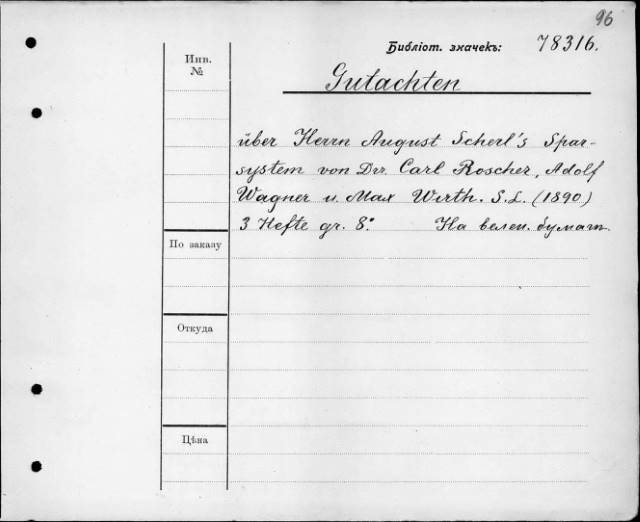 96
Библіот. значекъ: 78316.
Инв.
№
Gutachten
über Herrn August Scherl's Spar-
system von Drr. Carl Roscher, Adolf
Wagner u. Max Wirth. S.L. (1890)
3 Hefte gr. 8º. На велен. бумаг.
По заказу
Откуда
Цѣна